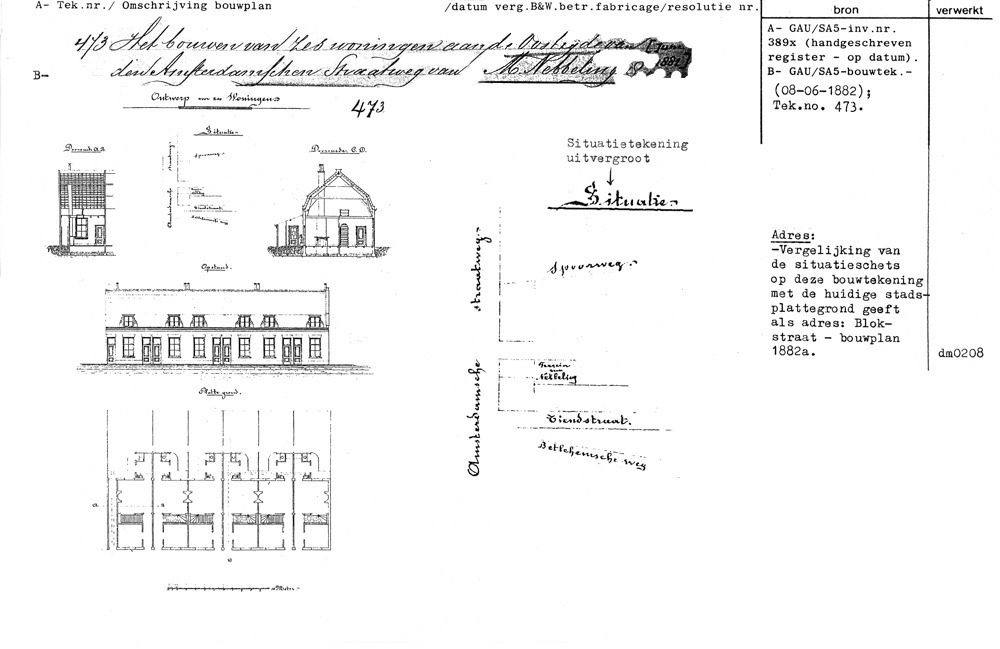 A- Tek.nr./ Omschrijving bouwplan /datum verg.B&W.betr.fabricage/resolutie nr.
bron
verwerkt
473 Het bouwen van zes woningen aan de Oostzijde van
den Amsterdamschen Straatweg van M. Nebbeling
1882
B-
A- GAU/SA5-inv.nr.
389x (handgeschreven
register - op datum).
B- GAU/SA5-bouwtek.-
(08-06-1882);
Tek.no. 473.
Ontwerp van Woningen
473
Situatie
Spoorweg
Doorsnede C.D.
Situatietekening
uitvergroot
Situatie
straatweg
Spoorweg
Amsterdamsche
Terrein
van
Nebbeling
Tiendstraat.
Betlehemsche weg
Opstand.
Platte grond.
Meter
Adres:
-Vergelijking van
de situatieschets
op deze bouwtekening
met de huidige stads-
plattegrond geeft
als adres: Blok-
straat - bouwplan
1882a.
dm0208